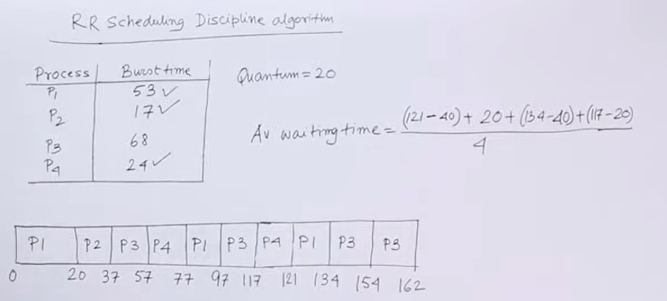 RR Scheduling Discipline algorithm
Process Burst time
P1 53 ✓
P2 17 ✓
P3 68
P4 24 ✓
Quantum = 20
Av waiting time = (121-40) + 20 + (134-40) + (117-20)
4
P1 P2 P3 P4 P1 P3 P4 P1 P3 P3
0 20 37 57 77 97 117 121 134 154 162